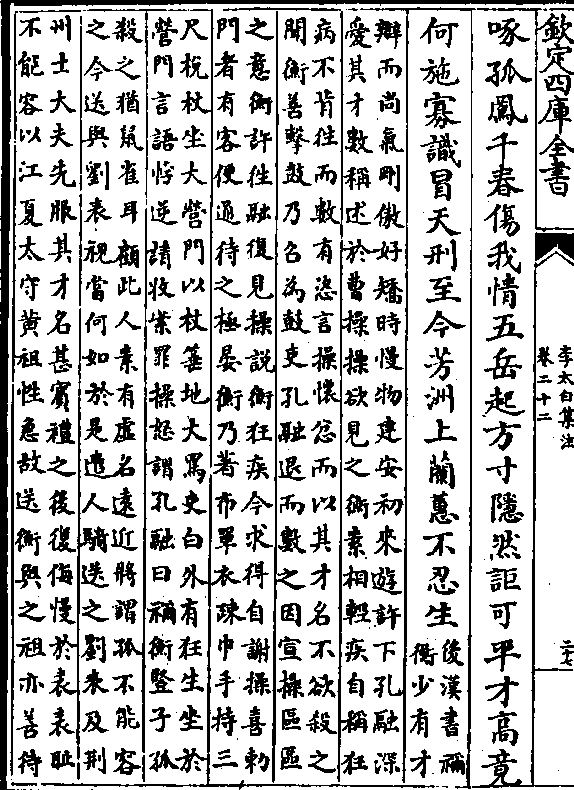 欽定四庫全書
李太白集注
卷二十二
二十七
啄孤鳳千春傷我情五岳起方寸隱然詎可平才高竟
何施寡識冒天刑至今芳洲上蘭蕙不忍生
後漢書禰
衡少有才
辯而尚氣剛傲好矯時慢物建安初來遊許下孔融深
愛其才數稱述於曹操操欲見之衡素相輕疾自稱狂
病不肯往而數有恣言操懷忿而以其才名不欲殺之
聞衡善擊鼓乃召為鼓吏孔融退而數之因宣操區區
之意衡許往融復見操說衡狂疾今求得自謝操喜勅
門者有客便通待之極晏衡乃著布單衣疎巾手持三
尺梲杖坐大營門以杖箠地大罵吏白外有狂生坐於
營門言語悖逆請收案罪操怒謂孔融曰禰衡豎子孤
殺之猶䑕雀耳顧此人素有虛名遠近將謂孤不能容
之今送與劉表視當何如於是遣人騎送之劉表及荆
州士大夫先服其才名甚賓禮之後復侮慢於表表恥
不能容以江夏太守黃祖性急故送衡與之祖亦善待